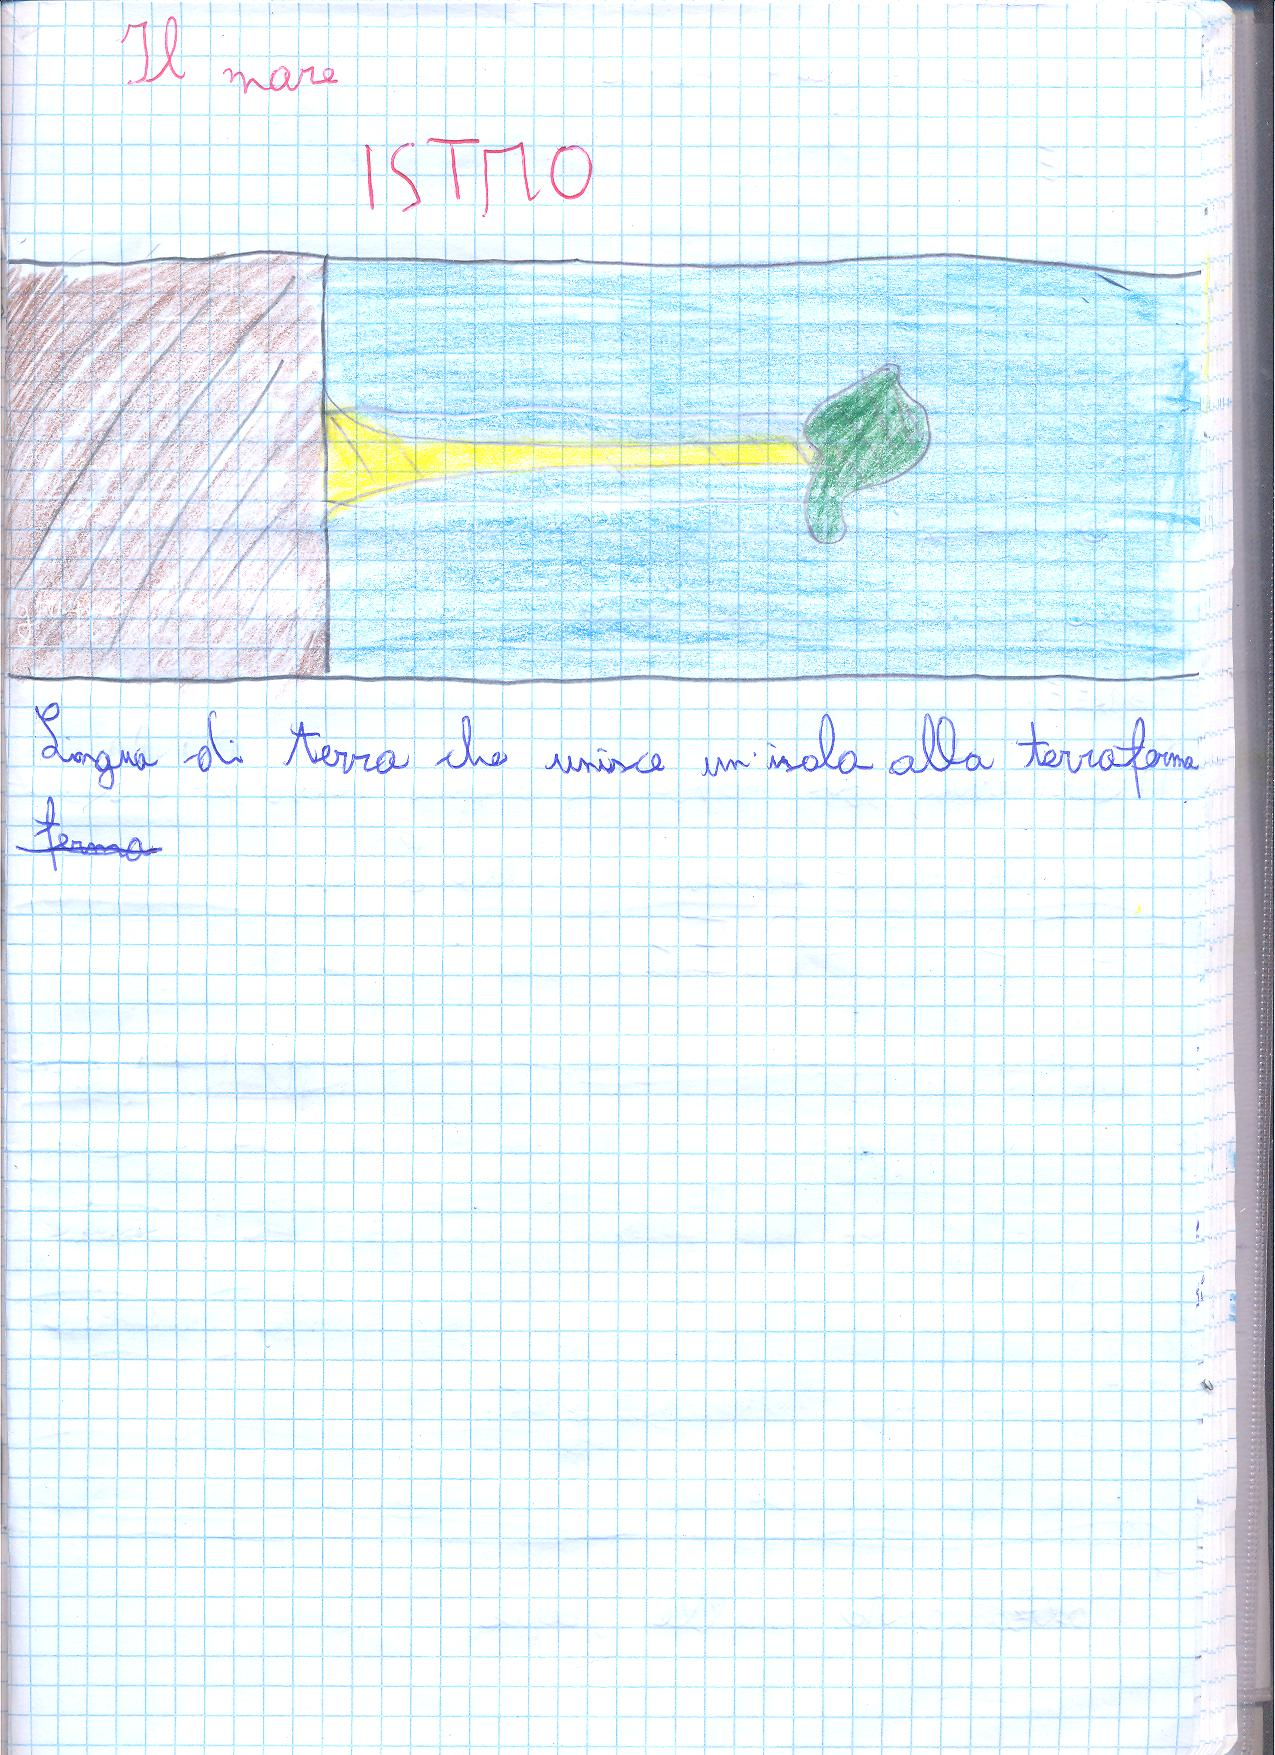 Il mare
ISTMO
Lingua di terra che unisce un'isola alla terraferma
ferma